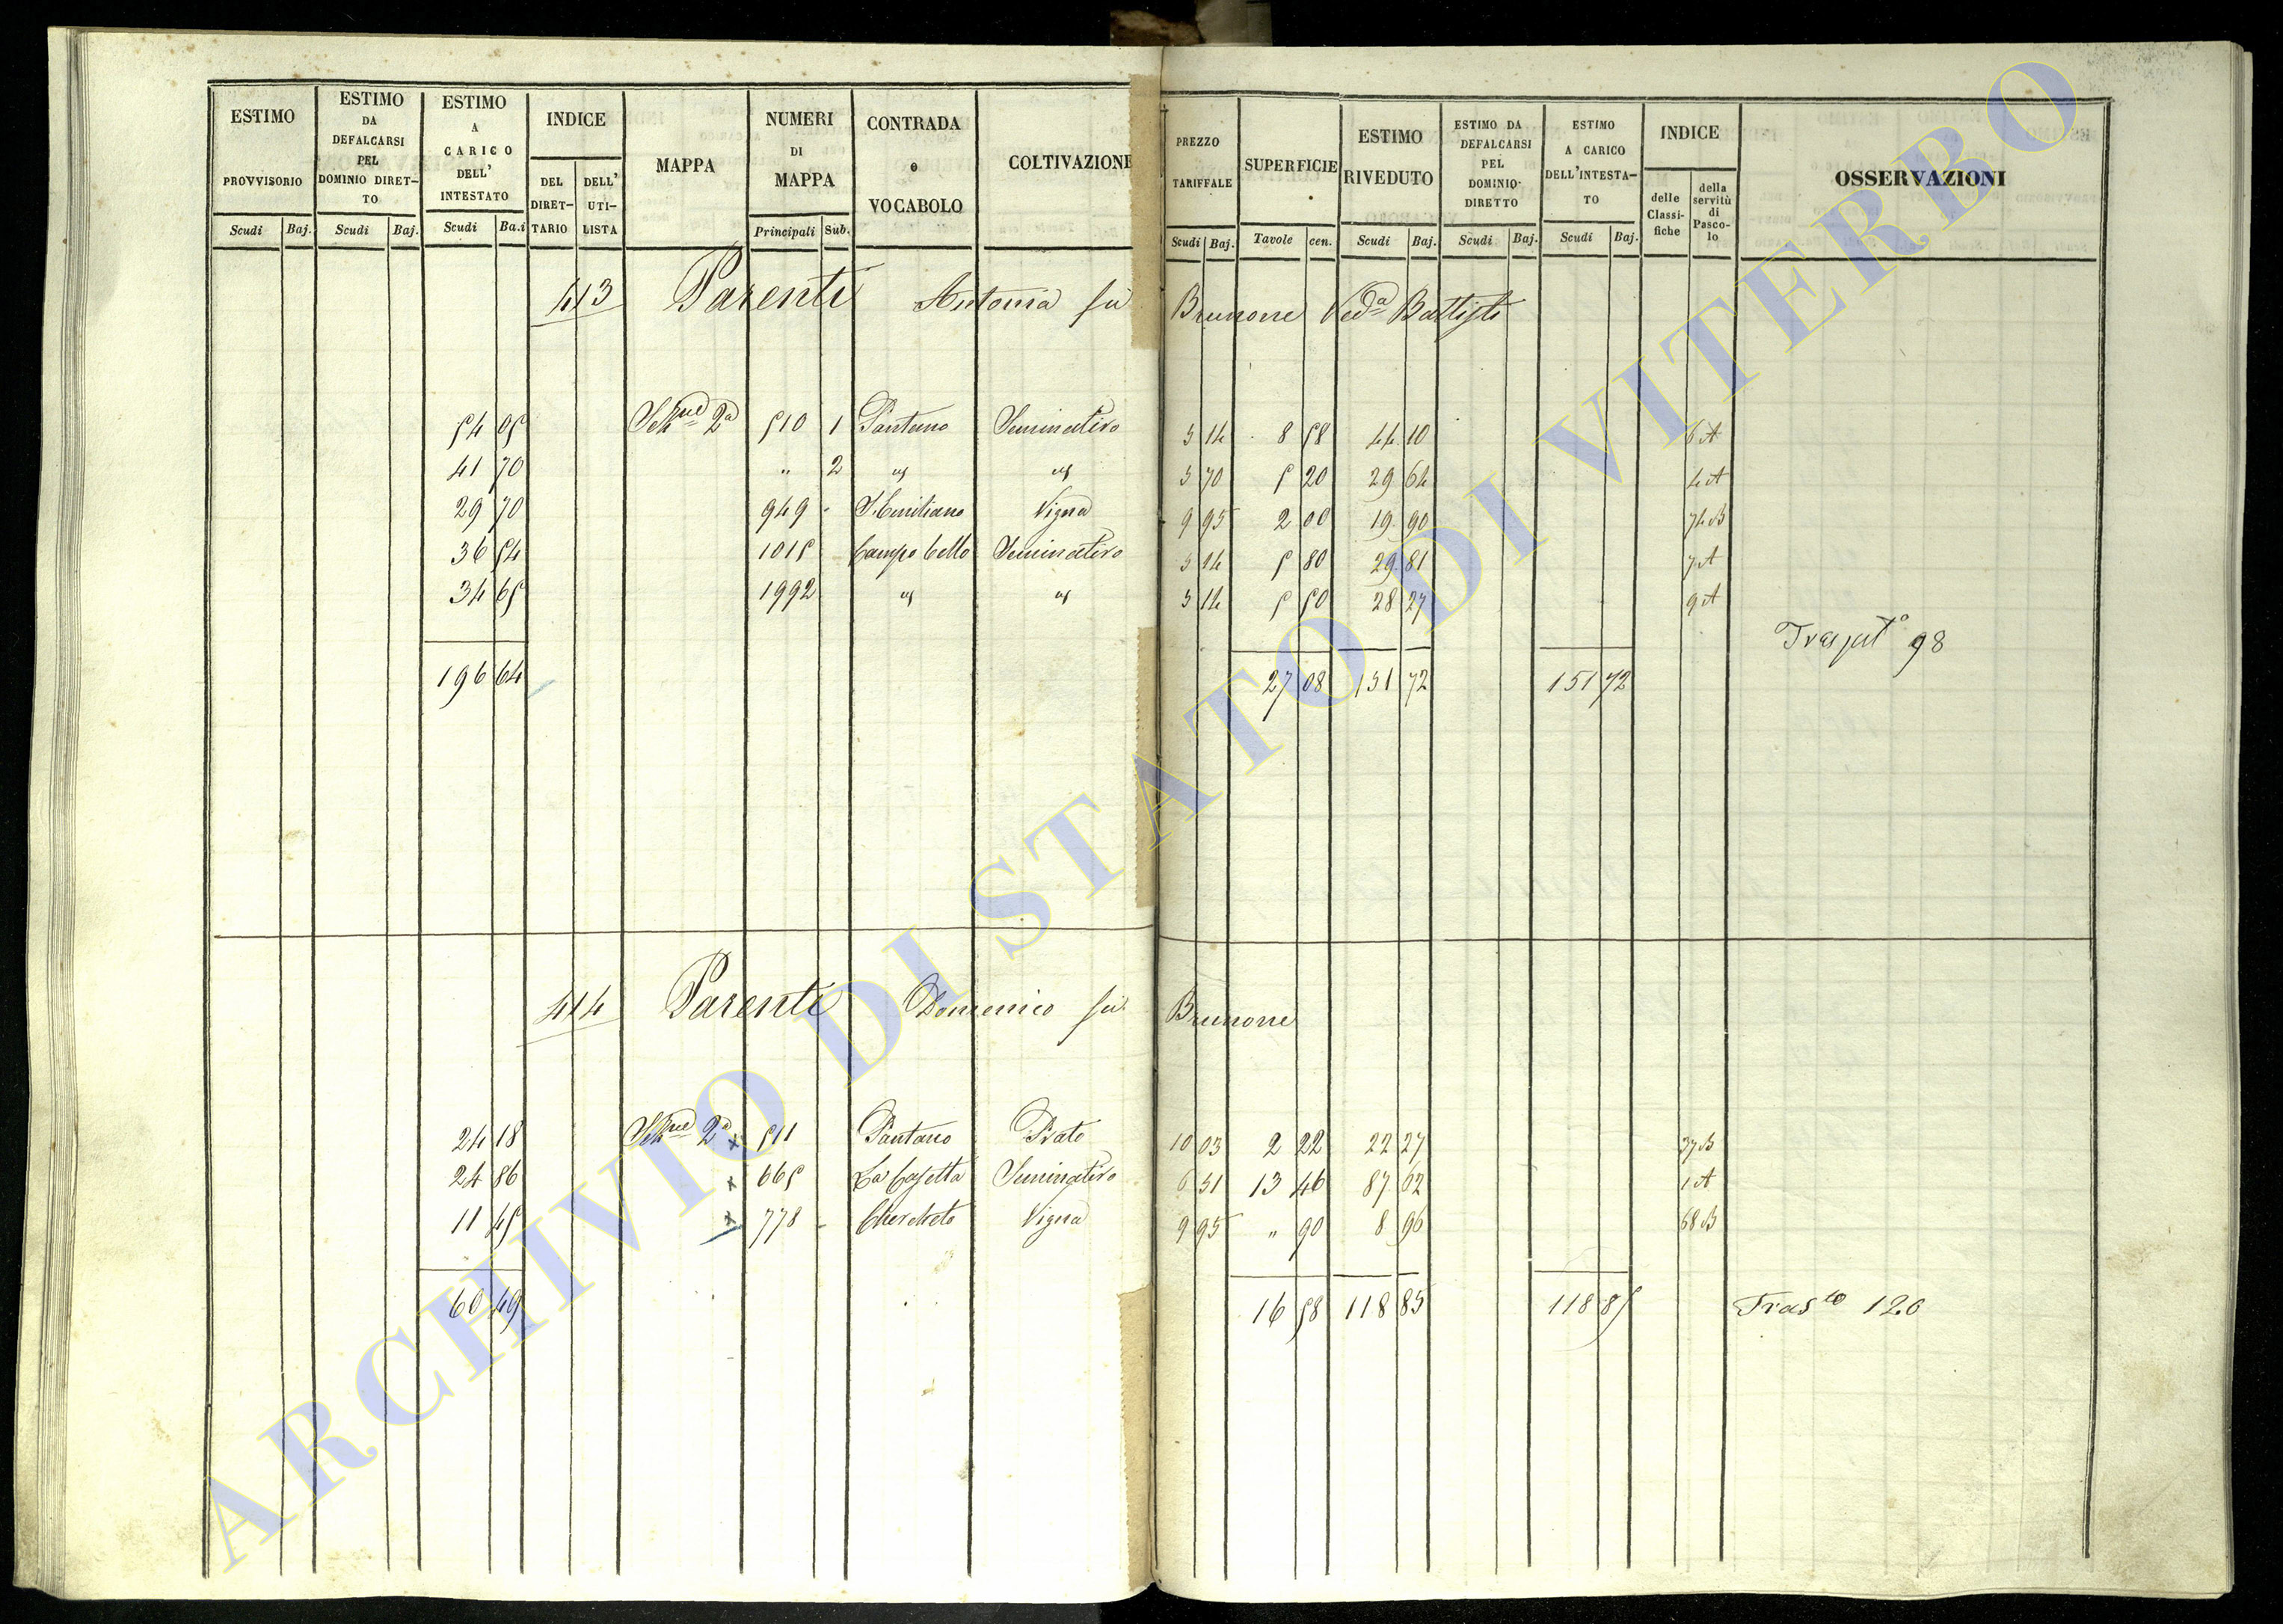 ESTIMO PROVVISORIO | ESTIMO DA DEFALCARSI PEL DOMINIO DIRET-TO | ESTIMO A CARICO DELL' INTESTATO | INDICE | MAPPA | NUMERI DI MAPPA | CONTRADA o VOCABOLO | COLTIVAZIONE | PREZZO TARIFFALE | SUPERFICIE | ESTIMO RIVEDUTO | ESTIMO DA DEFALCARSI PEL DOMINIO DIRETTO | ESTIMO A CARICO DELL'INTESTA-TO | INDICE | OSSERVAZIONI
DEL DIRET-TARIO | DELL' UTI-LISTA | delle Classi-fiche | della servitù di Pasco-lo
Scudi | Baj. | Scudi | Baj. | Scudi | Ba.i | Principali | Sub. | Scudi | Baj. | Tavole | cen. | Scudi | Baj. | Scudi | Baj. | Scudi | Baj.
413 Parenti Antonia fu Brunone Ved.a Battisti
54 05 | 2a | 510 | 1 | Pantano | Seminativo | 5 14 | 8 58 | 44 10 | 6 A
41 70 | " | 2 | " | " | 5 70 | 5 20 | 29 64 | 4 A
29 70 | 949 | S. Emiliano | Vigna | 9 95 | 2 00 | 19 90 | 74 B
36 54 | 1015 | Campo bello | Seminativo | 5 14 | 5 80 | 29 81 | 7 A
34 65 | 1992 | " | " | 5 14 | 5 50 | 28 27 | 9 A
Trasport.o 98
196 64 | 27 08 | 151 72 | 151 72
414 Parenti Domenico fu Brunone
24 18 | 2a | x 511 | Pantano | Prato | 10 03 | 2 22 | 22 27 | 37 B
24 86 | x 665 | La Casetta | Seminativo | 6 51 | 13 46 | 87 62 | 1 A
11 45 | x 778 | Chercheto | Vigna | 9 95 | " 90 | 8 96 | 68 B
60 49 | 16 58 | 118 85 | 118 85 | Tras.to 120
ARCHIVIO DI STATO DI VITERBO